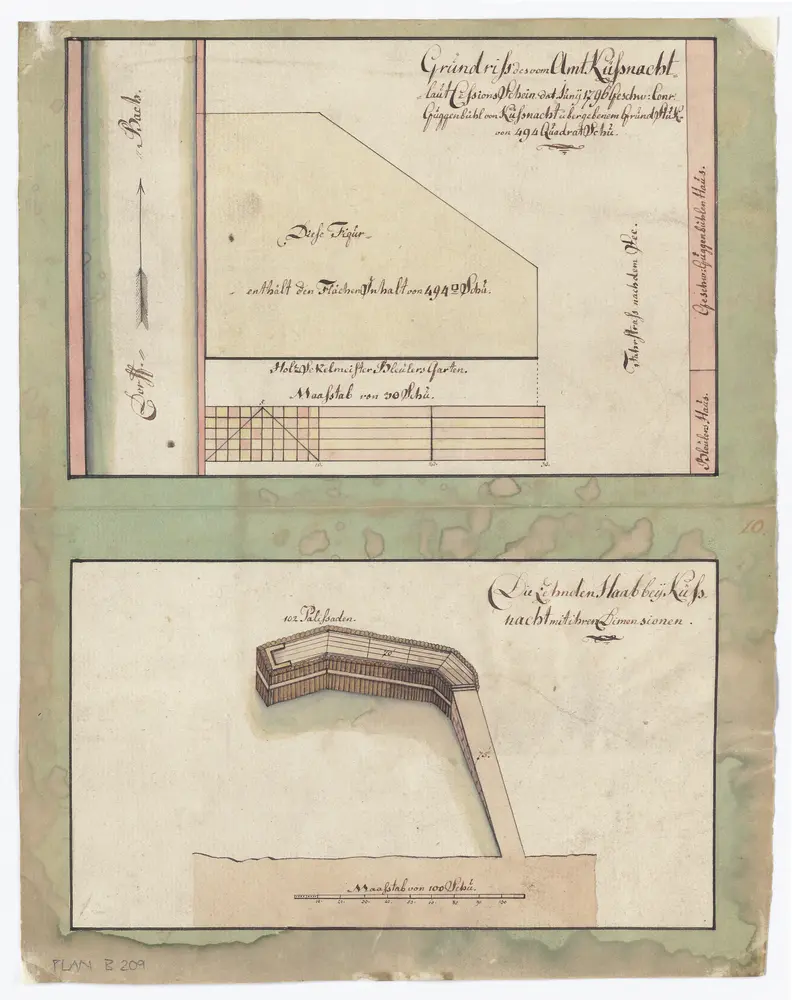 Grundriss des vom Amt Küssnacht
laut Cessions Schein dat. Junÿ 1796 Geschw: Conr.
Guggenbühl von Küssnacht übergebenem Grund Stük
von 494 Quadrat Schu.
Bach.
Dorff.
Diese Figur
enthält den Flächen Inhalt von 494 □ Schu.
Holz Sekelmeister Bleulers Garten.
Maasstab von 30 Schu.
10. 20. 30.
Fahrstrass nach dem See.
Geschw: Guggenbühlen Haus.
Bleulers Haus.
10.
Die Zehnden Haab beÿ Küss
nacht mit ihren Dimensionen.
102 Palissaden.
70.
75.
Maasstab von 100 Schu.
PLAN B 209